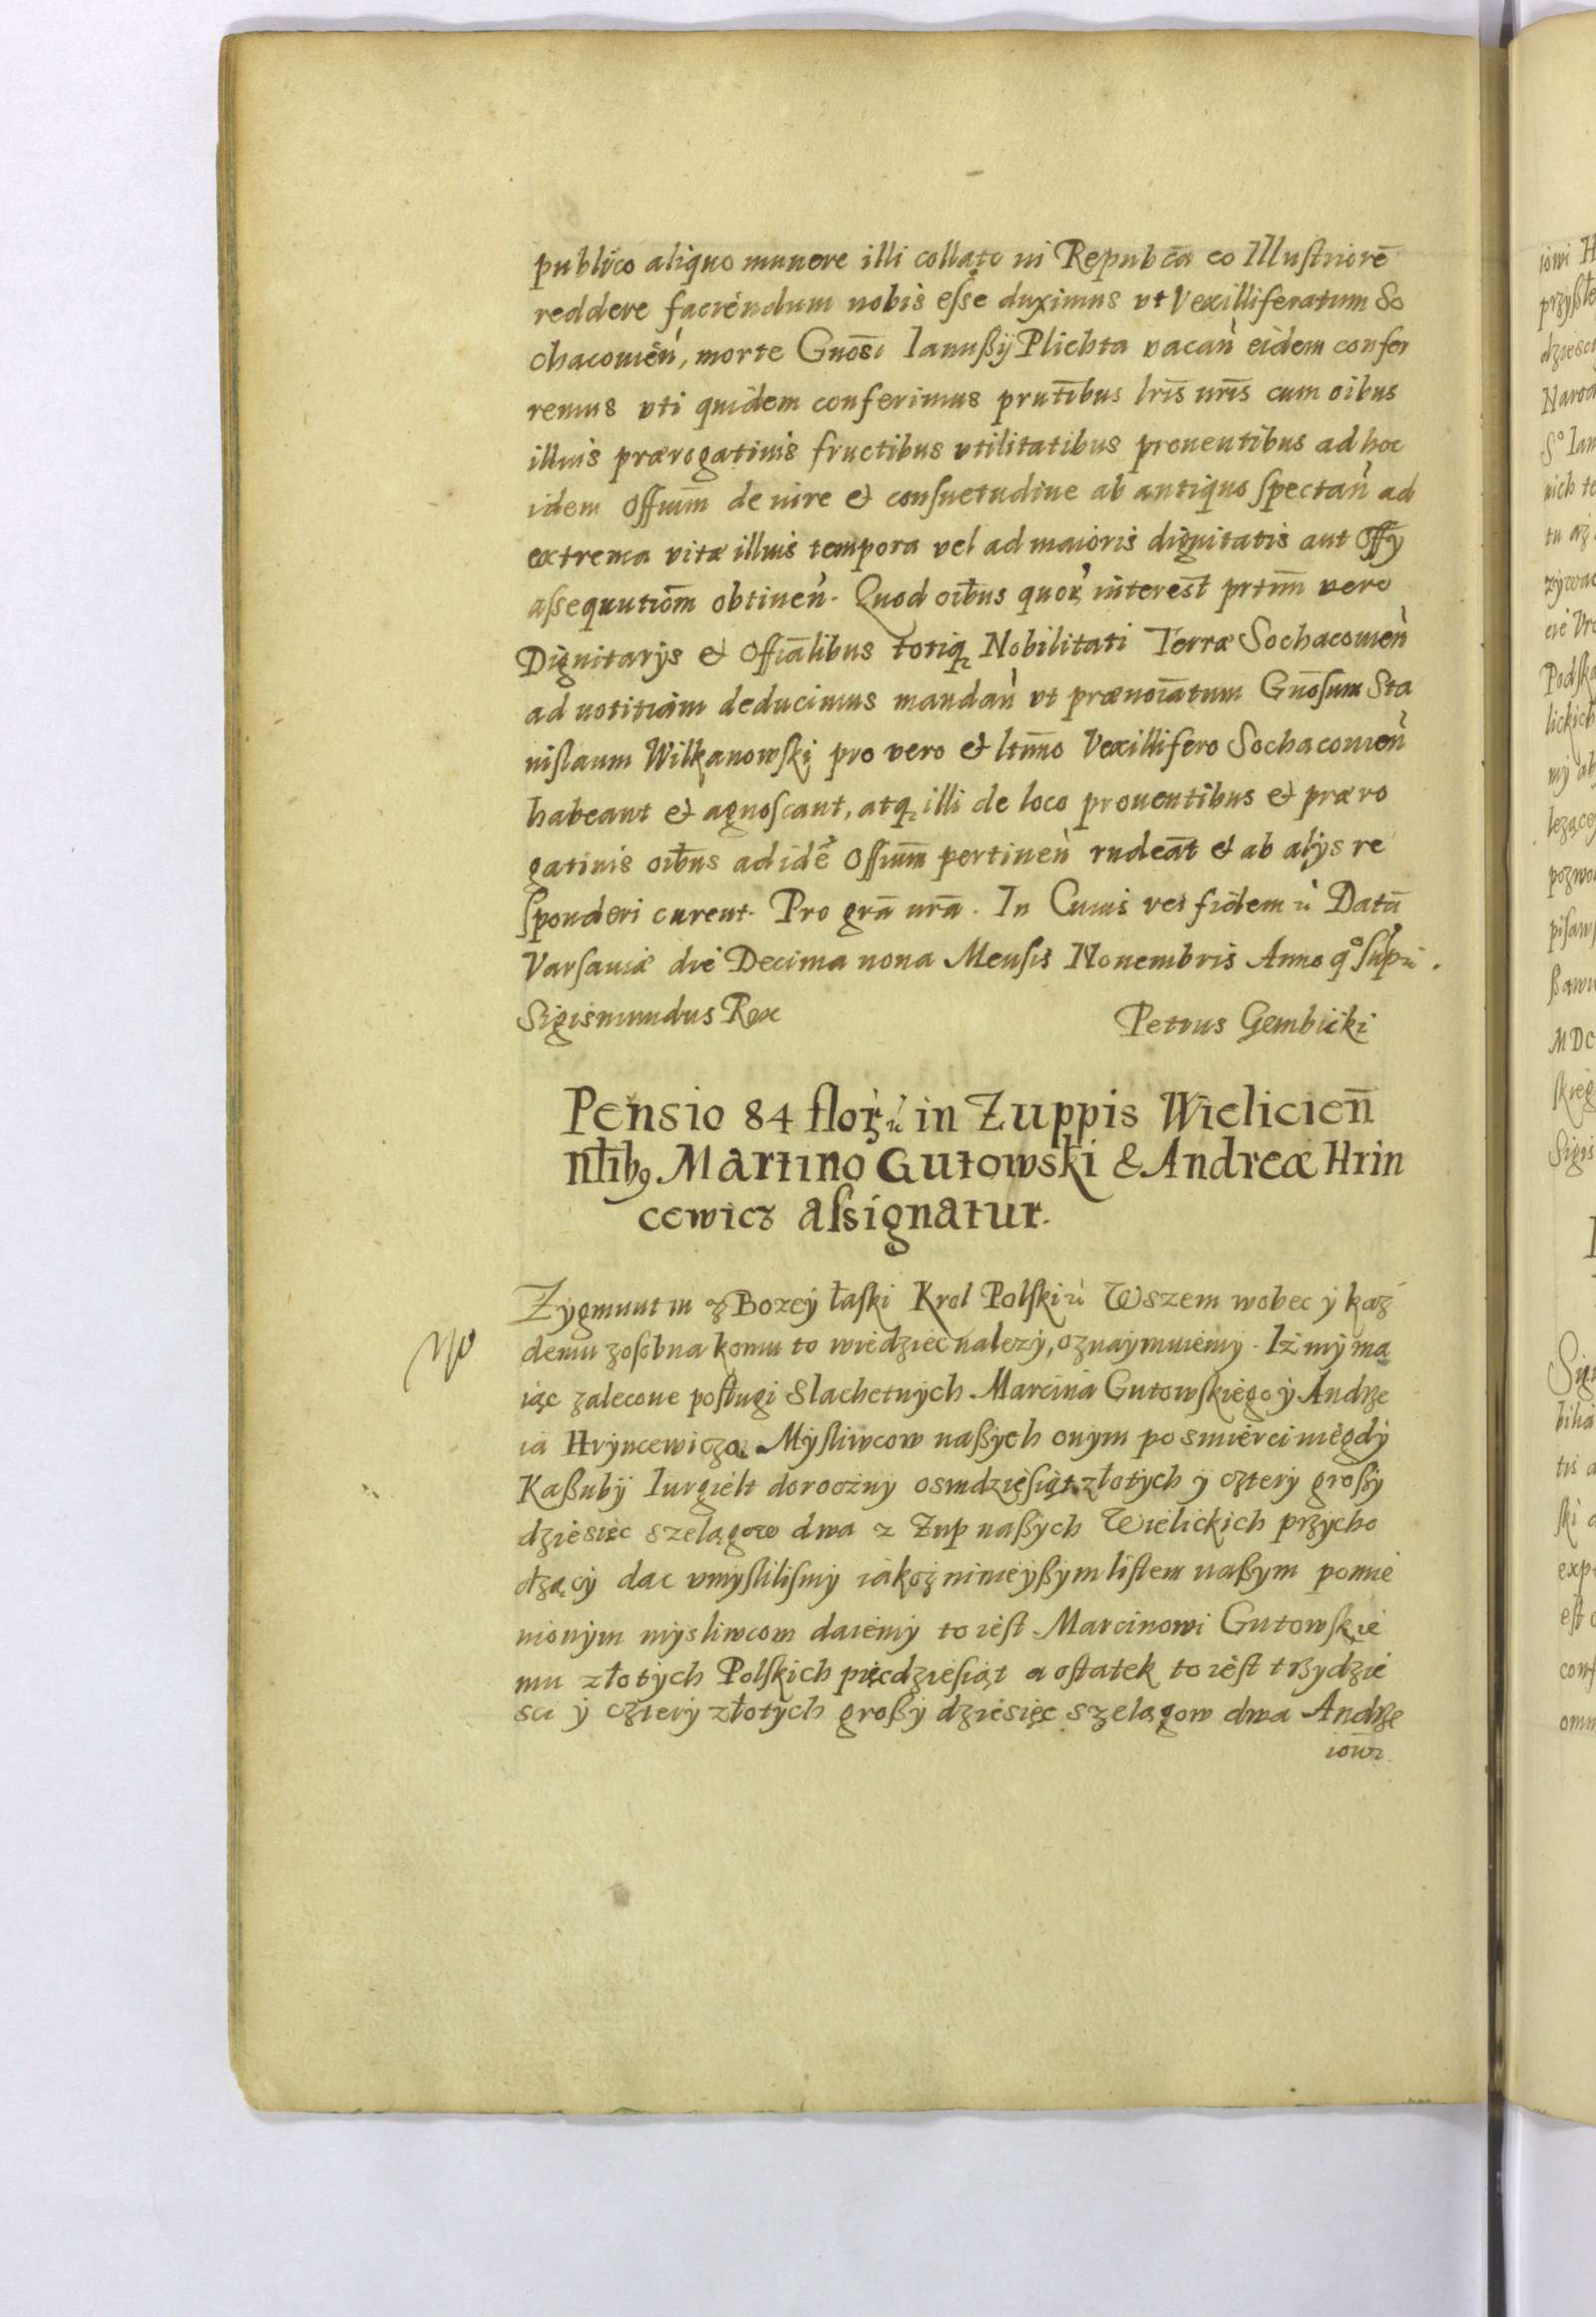 publico aliquo munere illi collato in Repubca̅ eo Illustriore̅
reddere faciendum nobis esse duximus vt Vexilliferatum So
chacouien̉, morte Gno̅si Ianußÿ Plichta vacan̉ eidem confer
remus vti quidem conferimus prnti̅bus lri̅s nri̅s cum oibus
illius prærogatiuis fructibus vtilitatibus prouentibus ad hoc
idem Offiu̅m de iure & consuetudine ab antiquo spectan̉ ad
extrema vitæ illius tempora vel ad maioris dignitatis aut Offy
assequutio̅m obtinen̉. Quod oib̅us quor̉ interest prti̅m vero
Dignitarÿs & Officia̅libus totiq̢ Nobilitati Terræ Sochacouien̉
ad notitiam deducimus mandan̉ vt prænoia̅tum Gno̅sum Sta
nislaum Wilkanowski pro vero & ltim̅o Vexillifero Sochacouien̉
habeant & agnoscant, atq̢ illi de loco prouentibus & præro
gatiuis oib̅us ad ide̅ Offiu̅m pertinen̉ rndea̅t & ab alÿs re
sponderi curent. Pro gra̅ nra̅. In Cuius rei fidem ů Datu̅
Varsauiæ die Decima nona Mensis Nouembris Anno qº supů.
Sigismundus Rex
Petrus Gembicki
Pensio 84 flor̉ů in Zuppis Wielicien̅
nti̅bꝯ Martino Gutowski & Andreæ Hrin
cewicz assignatur.
Zygmunt III z Bozey łaski Krol Polski ů Wszem wobec y kaz
demu zosobna komu to wiedziec nalezy, oznaymuiemy. Iż my ma
iąc zalecone posługi Slachetnych Marcina Gutowskiego y Andrze
ia Hryncewicza Mysliwcow naßych onym po smierci niegdy
Kaßuby Iurgielt doroczny osmdziesiąt złotych y cztery großy
dziesiec szelągow dwa z Zup naßych Wielickich przycho
dzący dac vmyslilismy iakoz ninieyßym listem naßym pomie
nionym mysliwcom daiemy to iest Marcinowi Gutowskie
mu złotych Polskich pięcdziesiąt a ostatek to iest trzydzie
sci y cztery złotych großy dziesięc szelągow dwa Andrze
iowi